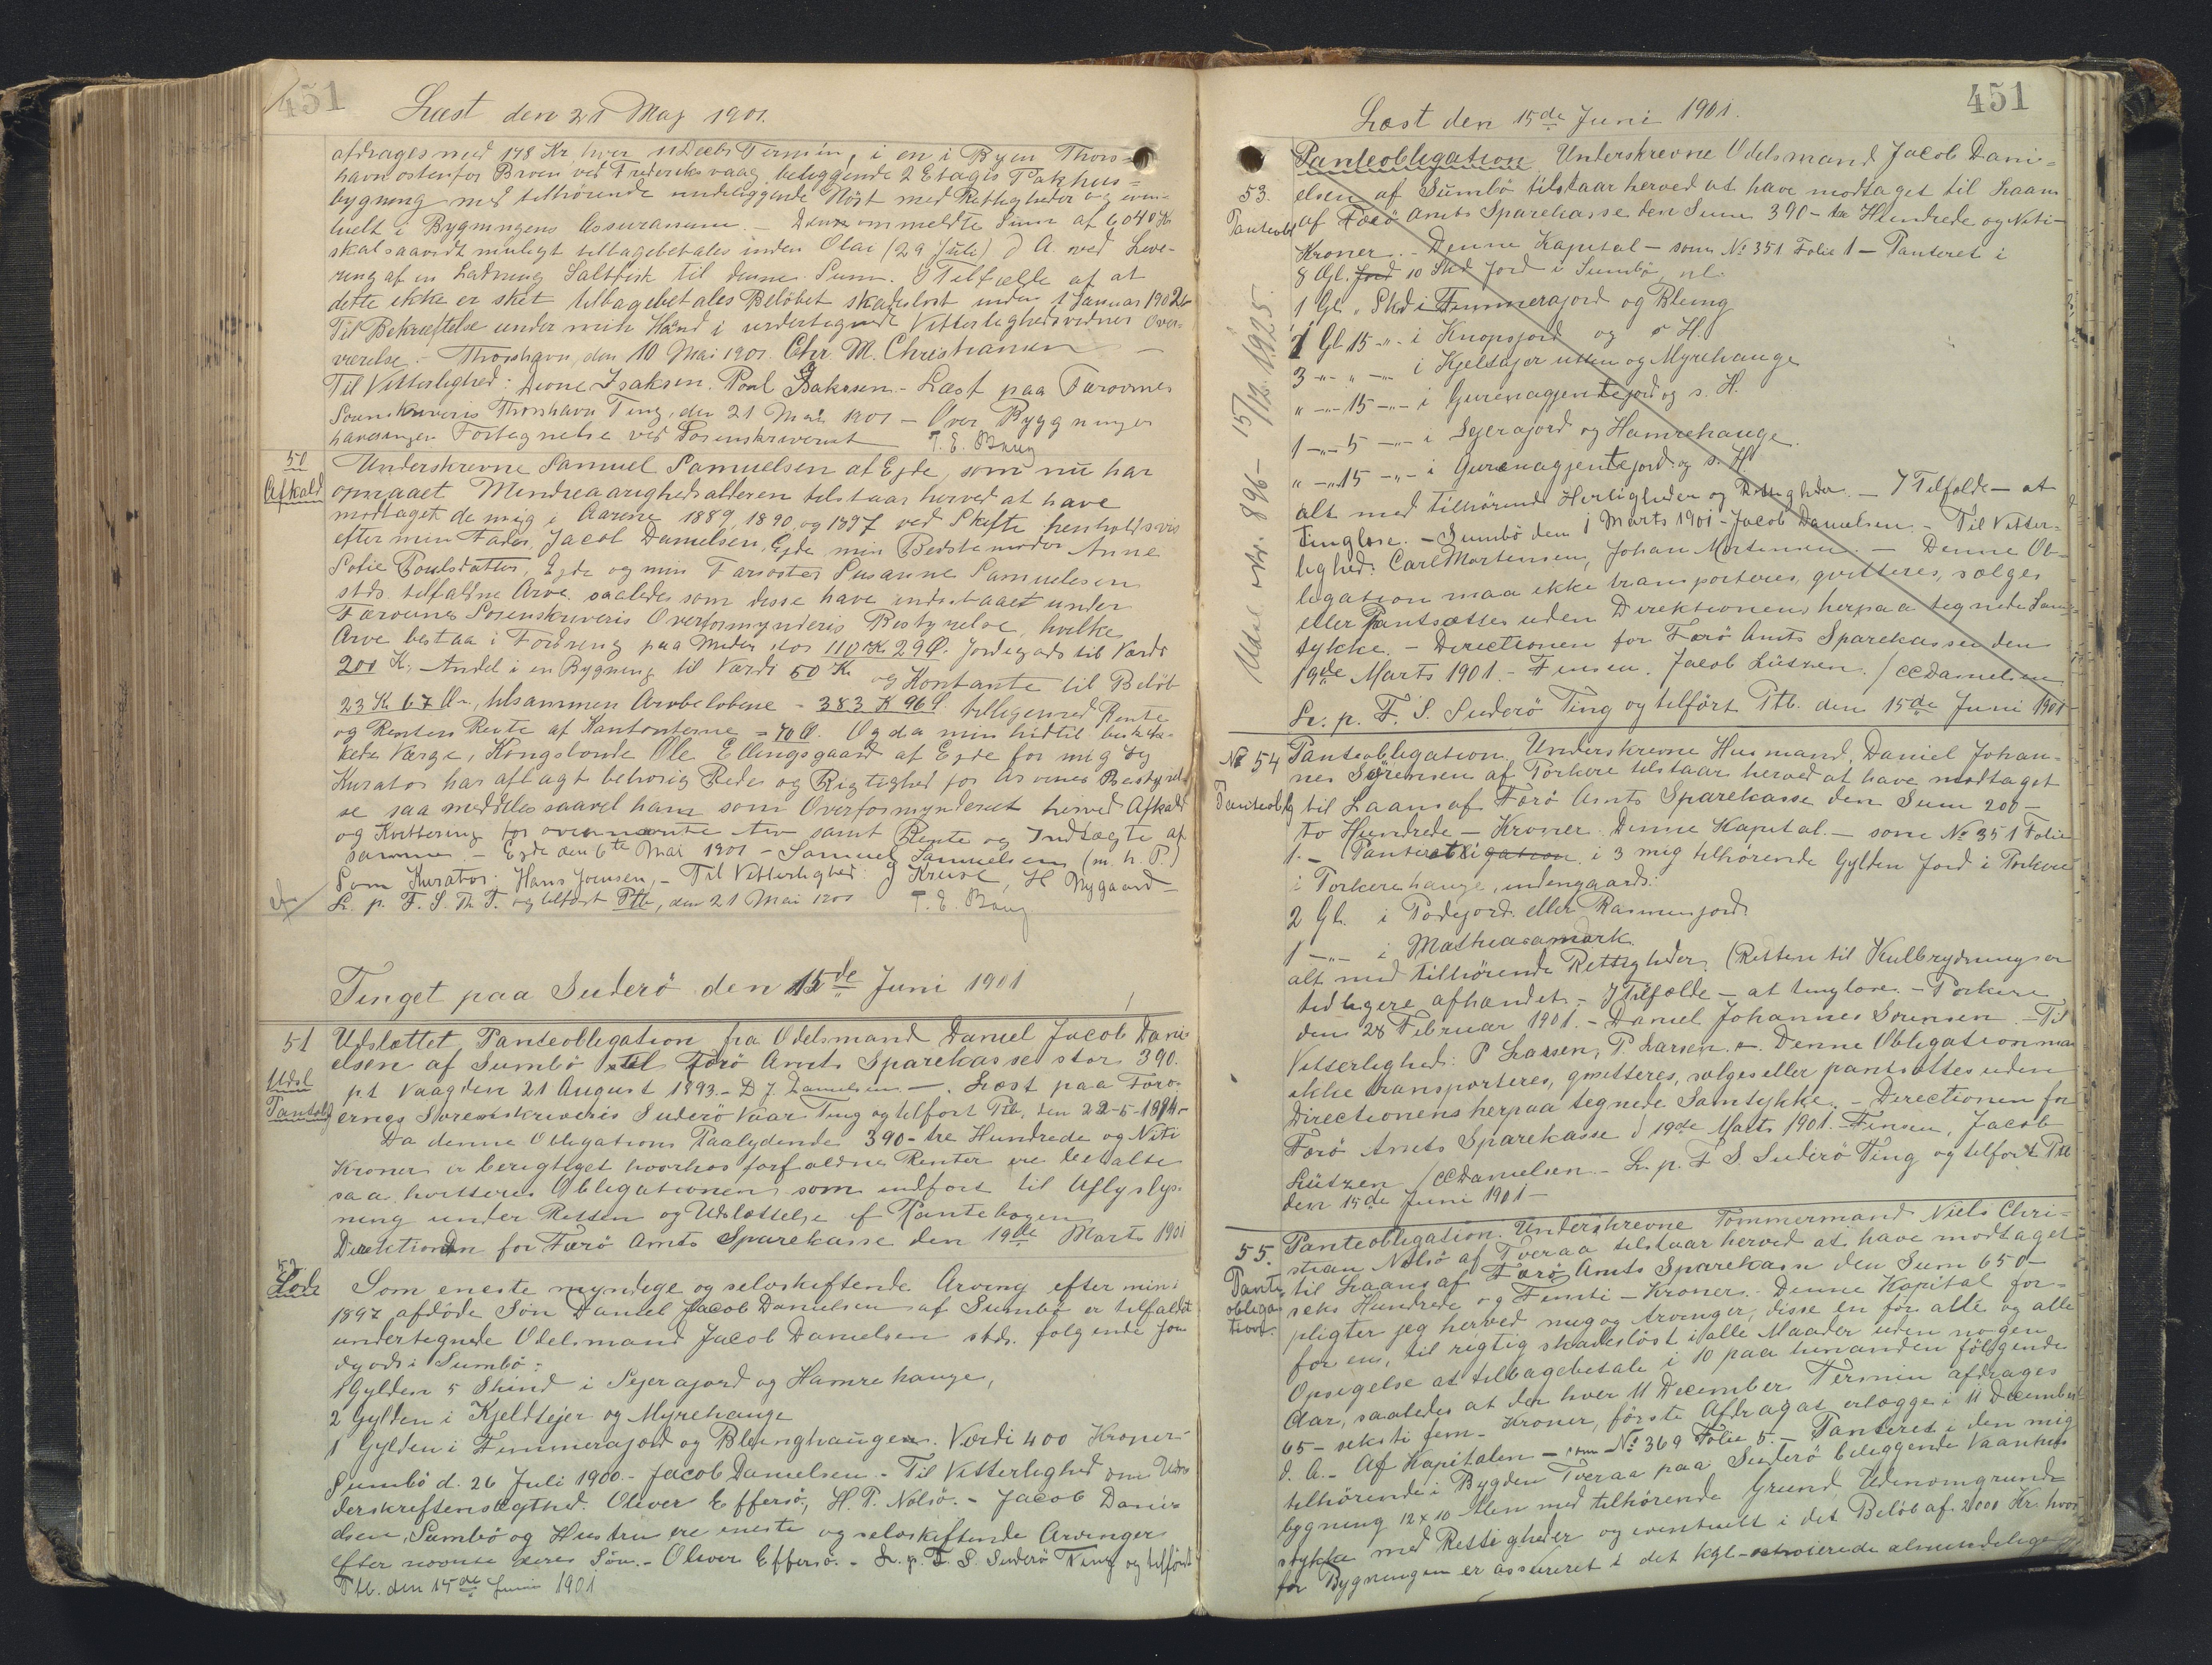 451
Læst den 21 Maj 1901.
afdrages med 178 Kr hver 11 Decbr Termin, i en i Byen Thors=
havn østenfor Broen ved Frederiksvaag beliggende 2 Etages Pakhus=
bygning med tilhørende underliggende Nöst med Rettigheder og even-
tuelt i Bygningens Assurance. - Denne ommeldte Sum af 6040 Kr
skal saavidt muligt tilbagebetales inden Olai (29 Juli) d A. ved Leve-
ring af en Ladning Saltfisk til denne Sum. I Tilfælde af at
dette ikke er sket tilbagebetales Beløbet skadesløst inden 1 Januar 1902
Til Bekræftelse under min Haand i undertegnede Vitterlighedsvidners Over-
værelse. - Thorshavn, den 10 Mai 1901. Chr. M. Christiansen -
Til Vitterlighed: Isaksen. Poul Isaksen. - Læst paa Færøernes
Sorenskriveris Thorshavn Ting, den 21 Mai 1901 - Over Bygninger
havesingen Fortegnelse ved Sorenskriveriet T. E. Bang
50
Afkald
Underskrevne Samuel Samuelsen af Ejde, som nu har
opnaaet Mindreaarighedsalderen tilstaar herved at have
modtaget de mig i Aarene 1889, 1890 og 1897 ved Skifte henholdsvis
efter min Fader, Jacob Danielsen, Ejde, min Bedstemoder Anne
Sofie Poulsdatter, Ejde og min Farsøster Susanne Samuelsen
stds. tilfaldne Arve saaledes som disse have indestaaet under
Færøernes Sorenskriveris Overformynderis Bestyrelse, hvilke
Arve bestaa i Fordring paa Moder stor 110 Kr 29 Ø. Jordegods til Værdi
200 Kr, Andel i en Bygning til Værdi 50 Kr og Kontante til Beløb
23 Kr 67 Ør, tilsammen Arvebeløbene - 383 K 96 Ø. tilligemed Rente
og Renters Rente af Kontanterne = 70 Ø. Og da min hidtil beskik-
kede Værge, Kongsbonde Ole Ellingsgaard af Ejde for mig og
Kurator har aflagt behørig Rede og Rigtighed for Arvenes Bestyrel-
se saa meddeles saavel ham som Overformynderiet herved Afkald
og Kvittering for ovennævnte Arv samt Rente og Indtægte af
samme. - Ejde den 6te Mai 1901 - Samuel Samuelsen (m. h. P.)
Som Kurator: Hans Joensen, - Til Vitterlighed: J Kruse, H Nygaard -
L. p. F. S. Th. T. og tilført Ptb, den 21 Mai 1901 T. E. Bang
Tinget paa Suderö den 15de Juni 1901
51
Udsl
Pantobl
Udslettet Panteobligation fra Odelsmand Daniel Jacob Dani-
elsen af Sumbö til Færö Amts Sparekasse stor 390.
p.t Vaag den 21 August 1893. - D J. Danielsen -. Læst paa Færø-
ernes Sorenskriveris Suderö Vaar Ting og tilført Ptb, den 22-5-1894 -
Da denne Obligations Paalydende 390 - tre Hundrede og Niti
Kroner er berigtiget hvorhos forfaldne Renter ere betalte
saa kvitteres Obligationen som indfort til Aflyslys-
ning under Retten og Udslettelse af Pantebogen
Direktionen for Færö Amts Sparekasse den 19de Marts 1901
52
Som eneste myndige og selvskiftende Arving efter min i
1897 afdöde Sön Daniel Jacob Danielsen af Sumbö er tilfaldet
undertegnede Odelsmand Jacob Danielsen stds. folgende Jor
degods i Sumbö:
1 Gylden 5 Skind i Sejerajord og Hamrehauge,
2 Gylden i Kjeldsejer og Myrehauge
1 Gylden i Fimmerajord og Blejnghaugen. Værdi 400 Kroner.
Sumbö d. 26 Juli 1900. - Jacob Danielsen. - Til Vitterlighed om Un
derskriftens Ægthed. Oliver Effersö, H. P. Nolsö. - Jacob Dani-
elsen, Sumbö og Hustru ere eneste og selvskiftende Arvinger
efter nævnte deres Sön. - Oliver Effersö. - L. p. F. S. Suderö Ting og tilført
Ptb. den 15de Juni 1901
451
Læst den 15de Juni 1901.
53.
Panteobl
Udsl. Nr. 896 - 15/12 1925.
Panteobligation Underskrevne Odelsmand Jacob Dani=
elsen af Sumbö tilstaar herved at have modtaget til Laans
af Færö Amts Sparekasse den Sum 390 - tre Hundrede og Niti -
Kroner. - Denne Kapital - som No 351 Folie 1 - Panteret i
8 Gl. Jord 10 Skd Jord i Sumbö, nl.
1 Gl. " Skd i Fimmerajord og Bleing
1 Gl 15 -"- i Knopsjord og s H.
3 -"- " -"- i Kjeldsejer utten og Myrehauge
" -"- 15 -"- i Gurenagjentejord og s. H.
1 -"- 5 -"- i Sejerajord og Hamrehauge.
" -"- 15 -"- i Gurenagjentejord og s. H.
alt med tilhörende Herligheder og Rettigheder. - I Tilfælde - at
tinglæse. - Sumbö den 1 Marts 1901 - Jacob Danielsen. - Til Vitter-
lighed: Carl Mortensen, Johan Mortensen. - Denne Ob-
ligation maa ikke transporteres, qvitteres, sælges
eller Pantsættes uden Direktionens herpaa tegnede Sam-
tykke. - Directionen for Færö Amts Sparekasse den
19de Marts 1901. - Finsen. Jacob Lützen. / CCDanielsen
L. p. F. S. Suderö Ting og tilfört Ptb. den 15de Juni 1901
No 54
Panteoblg
Panteobligation Underskrevne Husmand, Daniel Johan-
nes Sörensen af Porkere tilstaar herved at have modtaget
til Laans af Færö Amts Sparekasse den Sum 200 -
to Hundrede - Kroner. Denne Kapital. - som No 351 Folie
1. - Panteret i 3 mig tilhörende Gylden Jord i Porkere
i Porkerehauge, indengaards:
2 Gl. i Todejord eller Rasmusjord
1 -"- i Mathiasamørk.
alt med tilhörende Rettigheder. (Retten til Kulbrydning er
tidligere afhændet. - I Tilfælde - at tinglæse. - Porkere
den 28 Februar 1901. - Daniel Johannes Sörensen. - Til
Vitterlighed: P Larsen, P. Larsen. - Denne Obligation maa
ikke transporteres, qvitteres, sælges eller pantsættes uden
Directionens herpaa tegnede Samtykke. - Directionen for
Færö Amts Sparekasse d 19de Marts 1901. Finsen, Jacob
Lützen /CCDanielsen - L. p. F S. Suderö Ting og tilfört Ptb
den 15de Juni 1901 -
55.
Pante
obliga
tion.
Panteobligation. Underskrevne Tømmermand Niels Chri-
stian Nolsö af Tveraa tilstaar herved at have modtaget
til Laans af Færö Amts Sparekasse den Sum 650 -
seks Hundrede og Femti - Kroner. Denne Kapital for-
pligter jeg herved mig og Arvinger, disse en for alle og alle
for en, til rigtig skadesløst i alle Maader uden nogen
Opsigelse at tilbagebetale i 10 paa hinanden fölgende
Aar, saaledes at der hver 11 December Termin afdrages
65 - seksti fem - Kroner, förste Afdrag at erlægge i 11 December
d. A. - Af Kapitalen - som No 369 Folie 5. - Panteret i den mig
tilhörende i Bygden Tveraa paa Suderö beliggende Vaanhus
bygning 12 x 10 Alen med tilhörende Grund Udenomgrunds
stykke med Rettigheder og eventuelt i det Beløb af 2000 Kr. hvor
for Bygningen er assureret i det kgl-octroierede almindelige